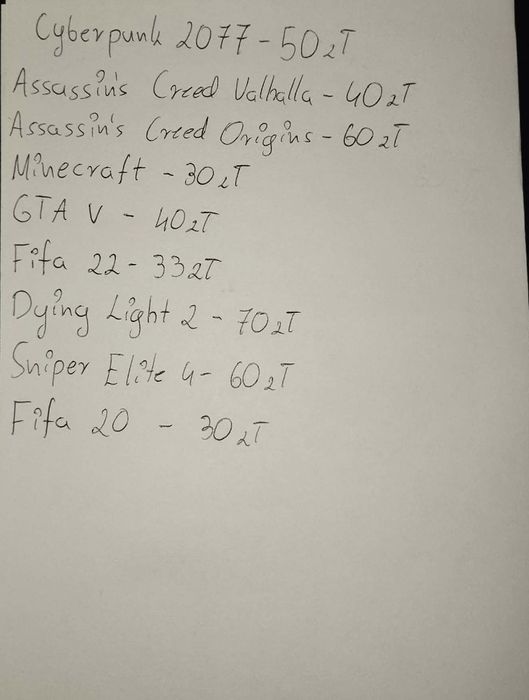 Cyberpunk 2077 - 50zł
Assassin's Creed Valhalla - 40zł
Assassin's Creed Origins - 60zł
Minecraft - 30zł
GTA V - 40zł
Fifa 22 - 33zł
Dying Light 2 - 70zł
Sniper Elite 4 - 60zł
Fifa 20 - 30zł